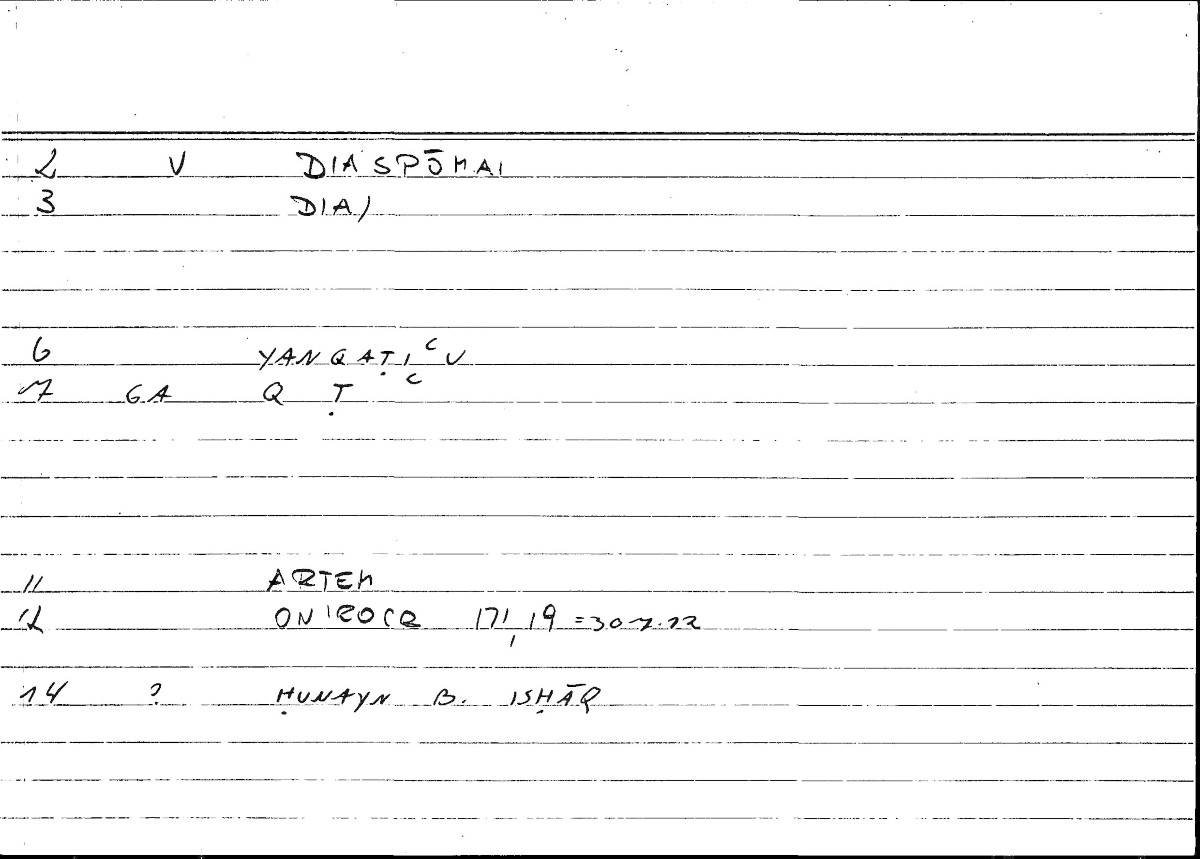 2 V DIASPŌMAI
3 DIA/
6 YANQAṬIʿU
7 GA Q Ṭ ʿ
11 ARTEM
12 ONIROCR 171,19 = 307.12
14 ? ḤUNAYN B. ISḤĀQ